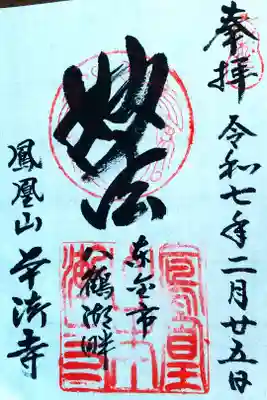 奉拝 令和七年二月廿五日
妙法
東金市
八鶴湖畔
鳳凰山 本漸寺